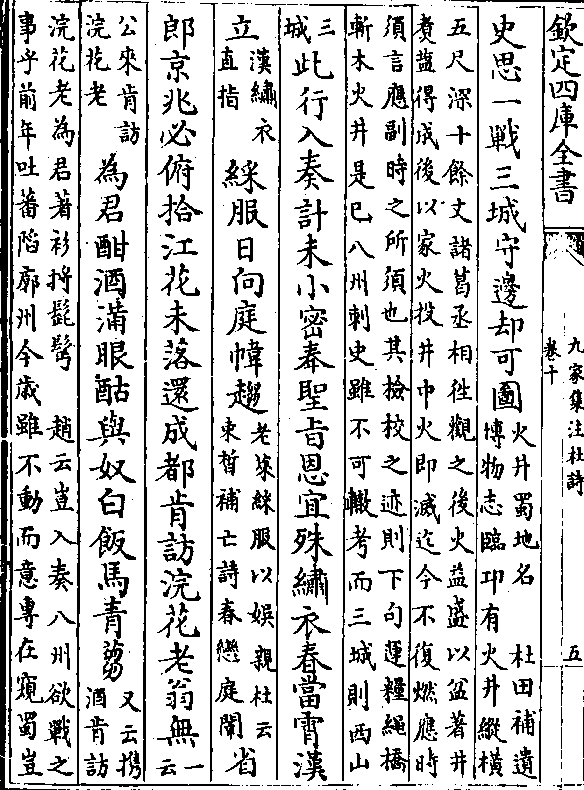 欽定四庫全書
九家集注杜詩
卷十
五
史思一戰三城守邊却可圖
火井蜀地名 杜田補遺
博物志臨卭有火井縱橫
五尺深十餘丈諸葛丞相徃觀之後火益盛以盆著井
煑鹽得成後以家火投井中火即滅迄今不復燃應時
須言應副時之所須也其檢校之迹則下句運糧繩橋
斬木火井是已八州刺史雖不可轍考而三城則西山
三
城
此行入奏計未小密奉聖旨恩宜殊繡衣春當霄漢
立
漢繡衣
直指
綵服日向庭幃趨
老萊綵服以娛親杜云
束晳補亡詩眷戀庭闈
省
郎京兆必俯拾江花未落還成都肯訪浣花老翁無
一
云
公來肯訪
浣花老
為君酤酒滿眼酤與奴白飯馬青芻
又云携
酒肯訪
浣花老為君著衫捋髭鬚 趙云豈入奏八州欲戰之
事乎前年吐蕃陷廓州今歳雖不動而意專在窺蜀豈